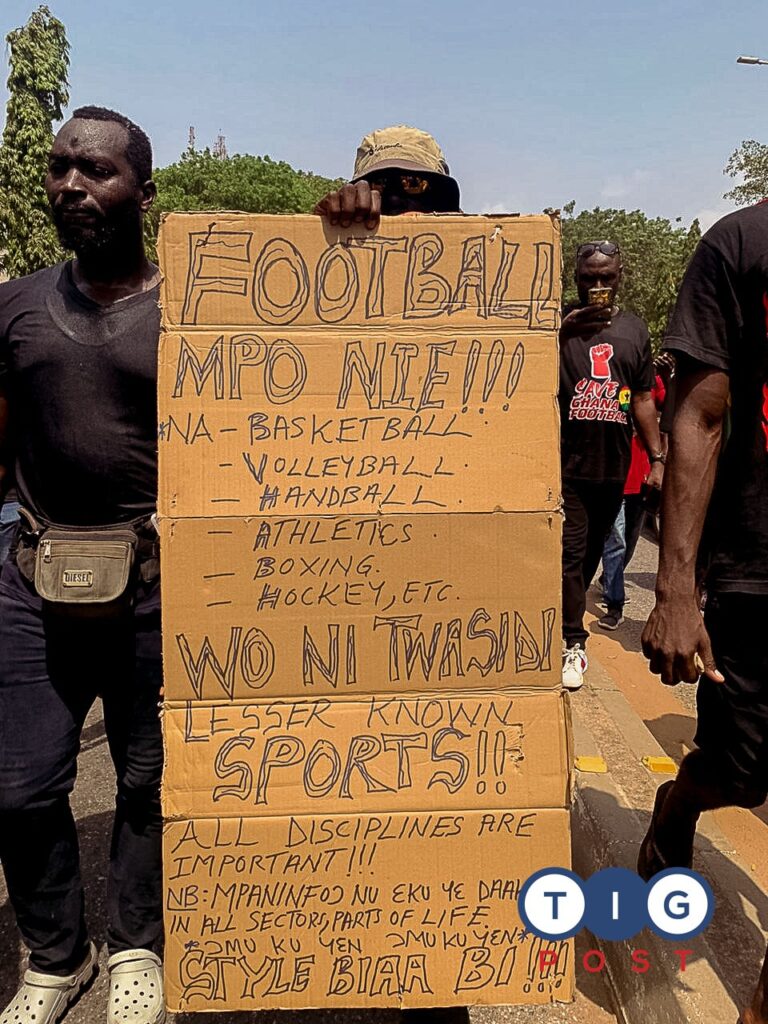 FOOTBALL
MPO NIE!!!
*NA - BASKETBALL.
- VOLLEYBALL.
- HANDBALL.
- ATHLETICS.
- BOXING.
- HOCKEY, ETC.
WO NI TWASIDI
LESSER KNOWN
SPORTS!!
ALL DISCIPLINES ARE
IMPORTANT!!!
NB: MPANINFOƆ NU ƐKU YƐ DAA
IN ALL SECTORS, PARTS OF LIFE.
*ƆMU KU YEN ƆMU KU YEN*
STYLE BIAA BI!!!
DIESEL
SAVE
GHANA
FOOTBALL
TIG
POST